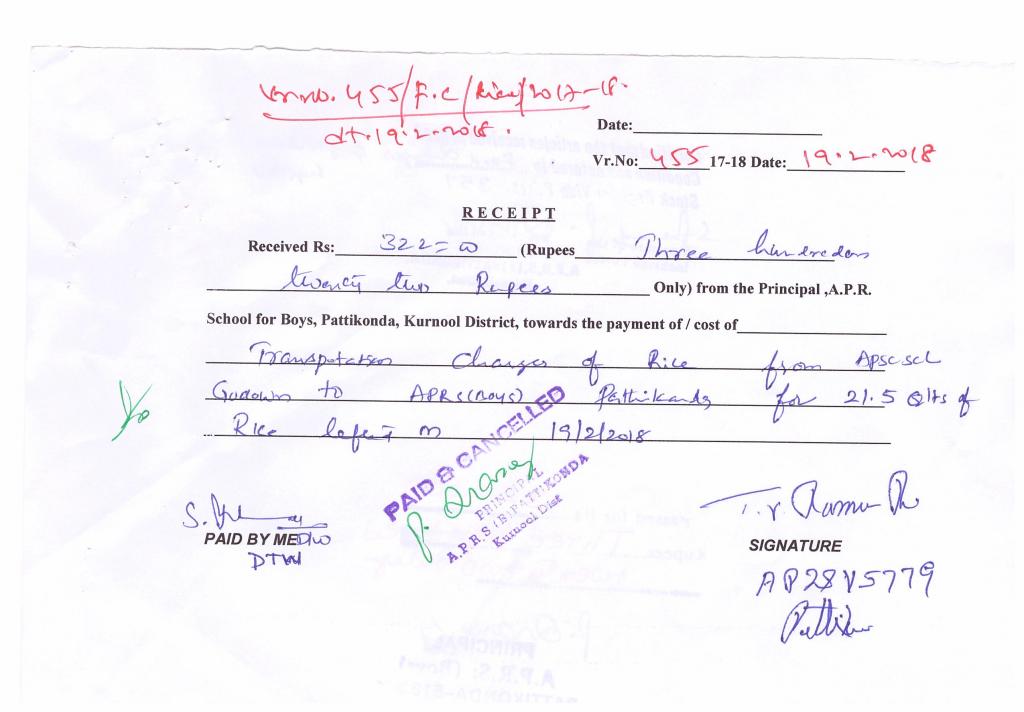 Vr.no. 455/F.C/Rice/2017-18.
dt.19.2.2018.
Date:
Vr.No: 455 17-18 Date: 19.2.2018
RECEIPT
Received Rs: 322=00 (Rupees Three hundredon
twenty two Rupees Only) from the Principal ,A.P.R.
School for Boys, Pattikonda, Kurnool District, towards the payment of / cost of
Transpotation Charges of Rice from Apscscl
Godown to APRS(Boys) Pattikonda for 21.5 Qlts of
Rice on 19/2/2018
PAID & CANCELLED
PRINCIPAL
A.P.R.S (B) PATTIKONDA
Kurnool Dist
S.
PAID BY ME
DTW
T.V. Ramu
SIGNATURE
AP28V5779